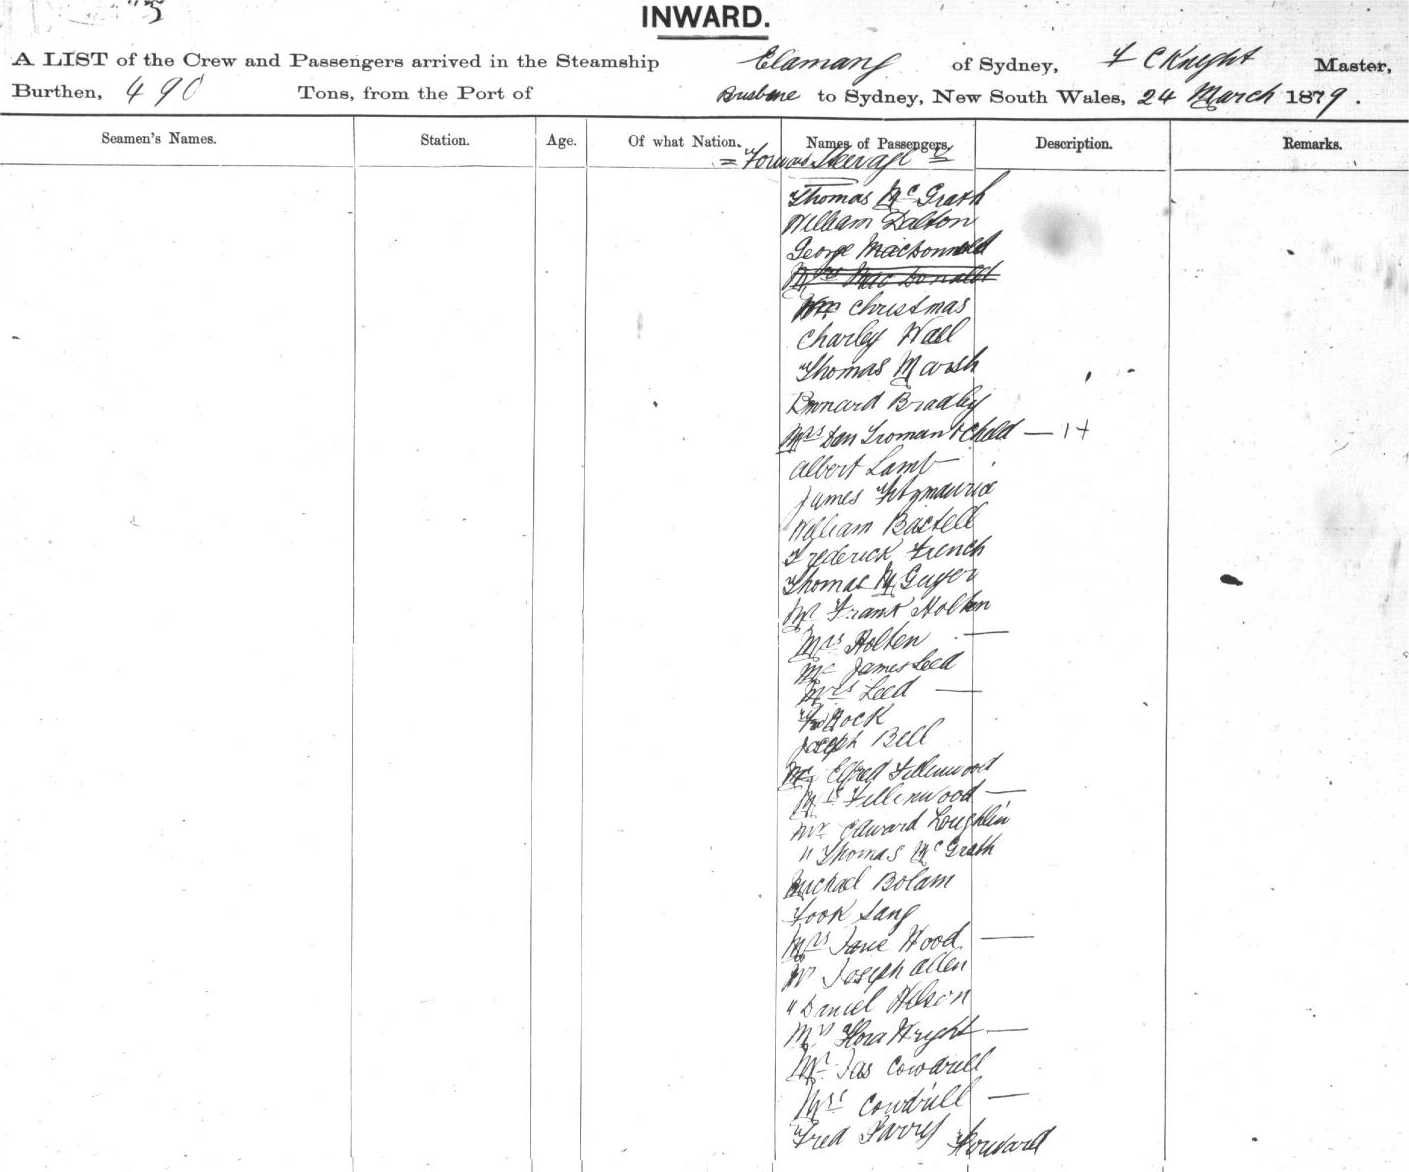 INWARD.
A LIST of the Crew and Passengers arrived in the Steamship Elamang of Sydney, F C Knight Master,
Burthen, 490 Tons, from the Port of Brisbane to Sydney, New South Wales, 24 March 1879.
Seamen's Names. Station. Age. Of what Nation. Names of Passengers. Description. Remarks.
= Forward Steerage =
Thomas McGrath
William Dalton
George Macdonnald
Mrs MacDonald
Wm Christmas
Charley Wall
Thomas Marsh
Bradley
Mrs Dan Troman & Child — 1+
Albert Lamb
James Fitzmaurice
William Bastell
Frederick French
Thomas McGuyer
Mr Frank Holten
Mrs Holten —
Mr James Leed
Mrs Leed —
Rock
Joseph Bell
Mr Elfred Fellenwood
Mrs Fellenwood —
Mr Edward Loughlin
" Thomas McGrath
Michael Bolam
Fook Sang
Mrs Jane Wood —
Mr Joseph Allen
" Daniel Wilson
Mrs Flora Wright —
Mr Jas Cowdrill
Mrs Cowdrill —
Fred Parry
Forward